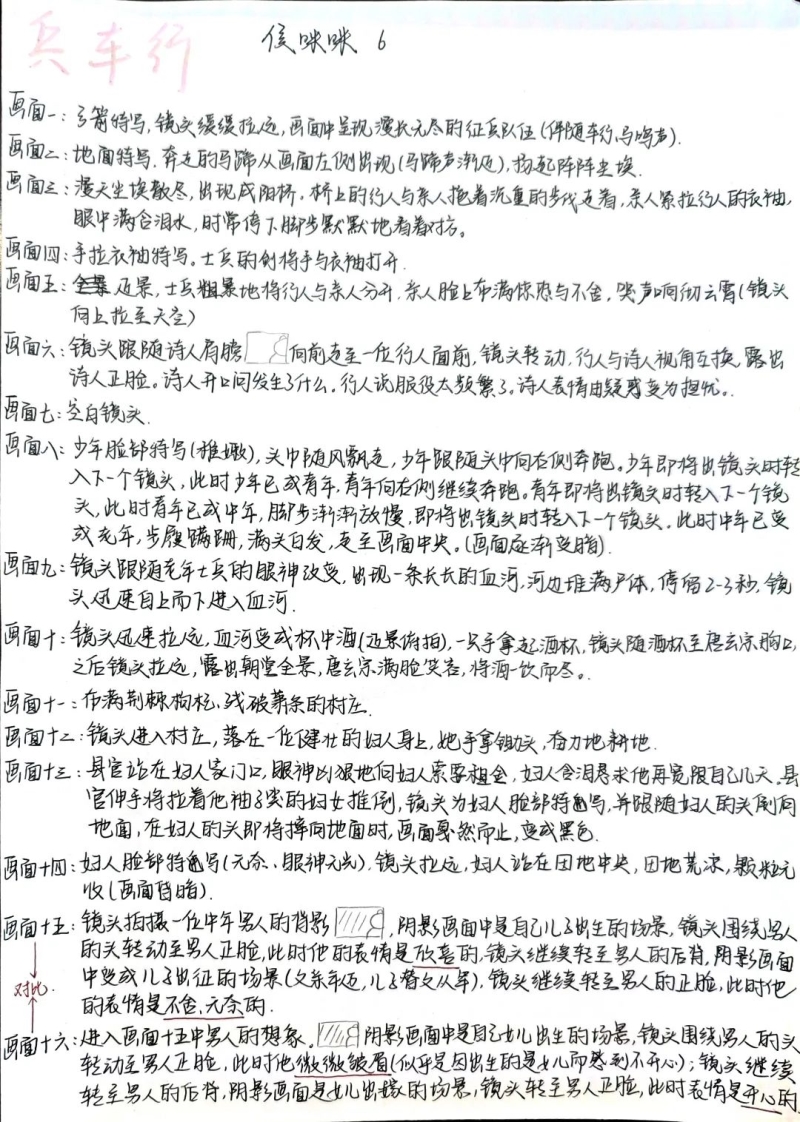 兵车行
侯咪咪 6
画面一:弓箭特写,镜头缓缓拉远,画面中呈现漫长无尽的征兵队伍(伴随车行、马鸣声).
画面二:地面特写.奔走的马蹄从画面左侧出现(马蹄声渐近),扬起阵阵尘埃.
画面三:漫天尘埃散尽,出现咸阳桥,桥上的行人与亲人拖着沉重的步伐走着,亲人紧拉行人的衣袖,
眼中满含泪水,时常停下脚步默默地看着对方。
画面四:手拉衣袖特写。士兵的剑将手与衣袖打开.
画面五:近景,士兵粗暴地将行人与亲人分开.亲人脸上布满惊恐与不舍,哭声响彻云霄(镜头
向上拉至天空)
画面六:镜头跟随诗人肩膀向前走至一位行人面前,镜头转动,行人与诗人视角互换.露出
诗人正脸。诗人开口问发生了什么.行人说服役太频繁了。诗人表情由疑惑变为担忧。
画面七:空白镜头.
画面八:少年脸部特写(稚嫩),头巾随风飘走,少年跟随头巾向右侧奔跑。少年即将出镜头时转
入下一个镜头,此时少年已成青年,青年向右侧继续奔跑。青年即将出镜头时转入下一个镜
头,此时青年已成中年,脚步渐渐放慢,即将出镜头时转入下一个镜头。此时中年已变
成老年,步履蹒跚,满头白发,走至画面中央。(画面逐渐变暗).
画面九:镜头跟随老年士兵的眼神改变,出现一条长长的血河,河边堆满尸体,停留2-3秒,镜
头迅速自上而下进入血河.
画面十:镜头迅速拉远,血河变成杯中酒(近景俯拍),一只手拿起酒杯,镜头随酒杯至唐玄宗胸口,
之后镜头拉远,露出朝堂全景,唐玄宗满脸笑容,将酒一饮而尽。
画面十一:布满荆棘枸杞、残破萧条的村庄.
画面十二:镜头进入村庄,落在一位健壮的妇人身上,她手拿锄头,奋力地耕地.
画面十三:县官站在妇人家门口,眼神凶狠地向妇人索要租金,妇人含泪恳求他再宽限自己几天.县
官伸手将拉着他袖子尖的妇女推倒,镜头为妇人脸部特写,并跟随妇人的头倒向
地面,在妇人的头即将摔向地面时,画面戛然而止,变成黑色.
画面十四:妇人脸部特写(无奈、眼神无光),镜头拉远,妇人站在田地中央,田地荒凉,颗粒无
收(画面昏暗).
画面十五:镜头拍摄一位中年男人的背影,阴影画面中是自己儿子出生的场景,镜头围绕男人
的头转动至男人正脸,此时他的表情是欣喜的,镜头继续转至男人的后背,阴影画面
中变成儿子出征的场景(父亲年迈,儿子替父从军),镜头继续转至男人的正脸,此时他
的表情是不舍,无奈的.
对比.
画面十六:进入画面十五中男人的想象。阴影画面中是自己女儿出生的场景,镜头围绕男人的头
转动至男人正脸,此时他微微皱眉(似乎是因出生的是女儿而感到不开心);镜头继续
转至男人的后背,阴影画面是女儿出嫁的场景,镜头转至男人正脸,此时表情是开心的.